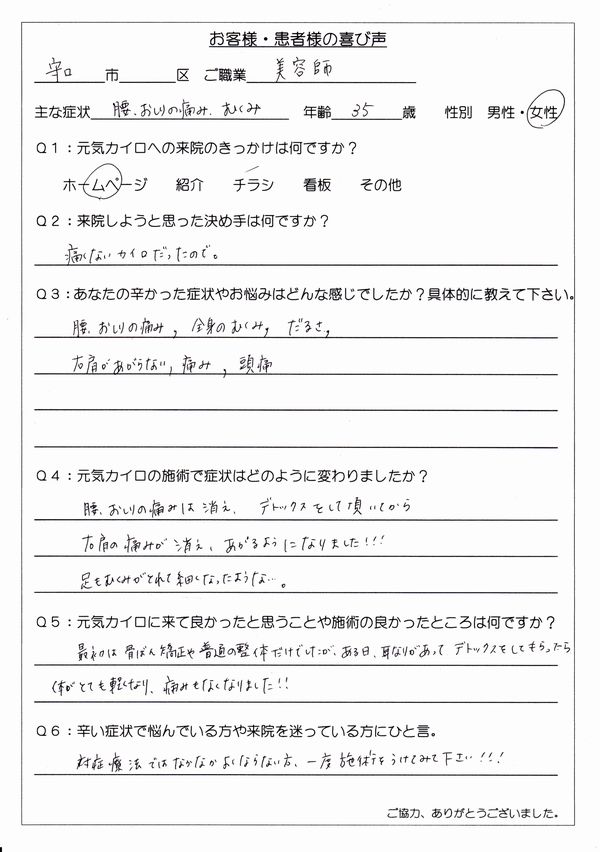 お客様・患者様の喜び声
守口 市 区 ご職業 美容師
主な症状 腰、おしりの痛み、むくみ 年齢 35 歳 性別 男性・女性
Q1:元気カイロへの来院のきっかけは何ですか?
ホームページ 紹介 チラシ 看板 その他
Q2:来院しようと思った決め手は何ですか?
痛くないカイロだったので。
Q3:あなたの辛かった症状やお悩みはどんな感じでしたか?具体的に教えて下さい。
腰、おしりの痛み, 全身のむくみ, だるさ,
右肩があがらない, 痛み, 頭痛
Q4:元気カイロの施術で症状はどのように変わりましたか?
腰、おしりの痛みは消え、デトックスをして頂いてから
右肩の痛みが消え、あがるようになりました!!!
足もむくみがとれて細くなったような…。
Q5:元気カイロに来て良かったと思うことや施術の良かったところは何ですか?
最初は骨ばん矯正や普通の整体だけでしたが、ある日、耳なりがあってデトックスをしてもらったら
体がとても軽くなり、痛みもなくなりました!!
Q6:辛い症状で悩んでいる方や来院を迷っている方にひと言。
対症療法ではなかなかよくならない方、一度施術をうけてみて下さい!!!
ご協力、ありがとうございました。